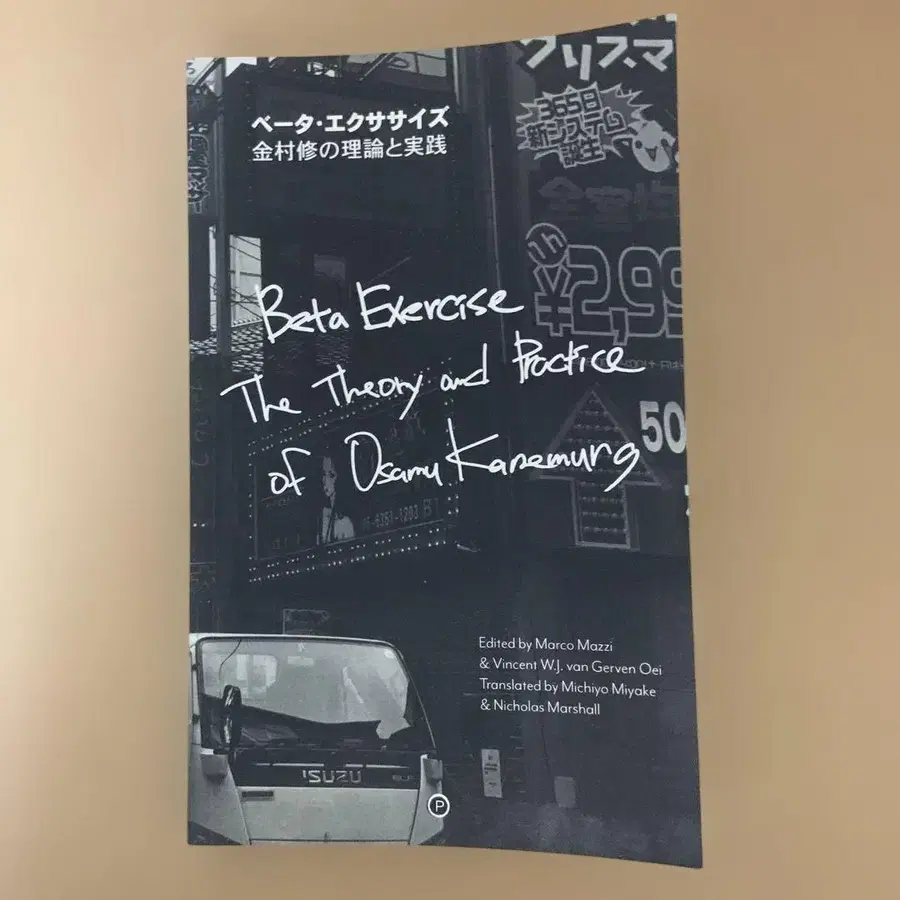 ベータ・エクササイズ
金村修の理論と実践
クリスマ
365日
新システム
誕生
1h
¥2,99
50
Beta Exercise
The Theory and Practice
of Osamu Kanemura
Edited by Marco Mazzi
& Vincent W.J. van Gerven Oei
Translated by Michiyo Miyake
& Nicholas Marshall
ISUZU
P